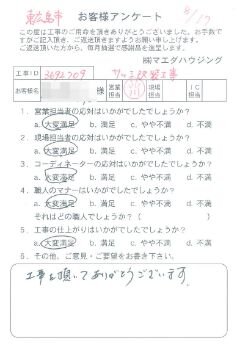 東広島市 お客様アンケート 8/17
この度は工事のご用命を頂きありがとうございました。お手数で
すがご記入頂き、ご返送頂きますようお願い申し上げます。
ご返送頂いた方から、毎月抽選で感謝品を進呈します。
㈱マエダハウジング
工事ID
お客様名 様 営業担当 現場担当 IC担当
1. 営業担当者の応対はいかがでしたでしょうか?
a.大変満足 b. 満足 c. やや不満 d. 不満
2. 現場担当者の応対はいかがでしたでしょうか?
a.大変満足 b. 満足 c. やや不満 d. 不満
3. コーディネーターの応対はいかがでしたでしょうか?
a.大変満足 b. 満足 c. やや不満 d. 不満
4. 職人のマナーはいかがでしたでしょうか?
a.大変満足 b. 満足 c. やや不満 d. 不満
それはどの職人でしょうか? ( )
5. 工事の仕上がりはいかがでしたでしょうか?
a.大変満足 b. 満足 c. やや不満 d. 不満
6. その他、ご意見・ご要望をお書き下さい。
工事を頂いてありがとうございます。